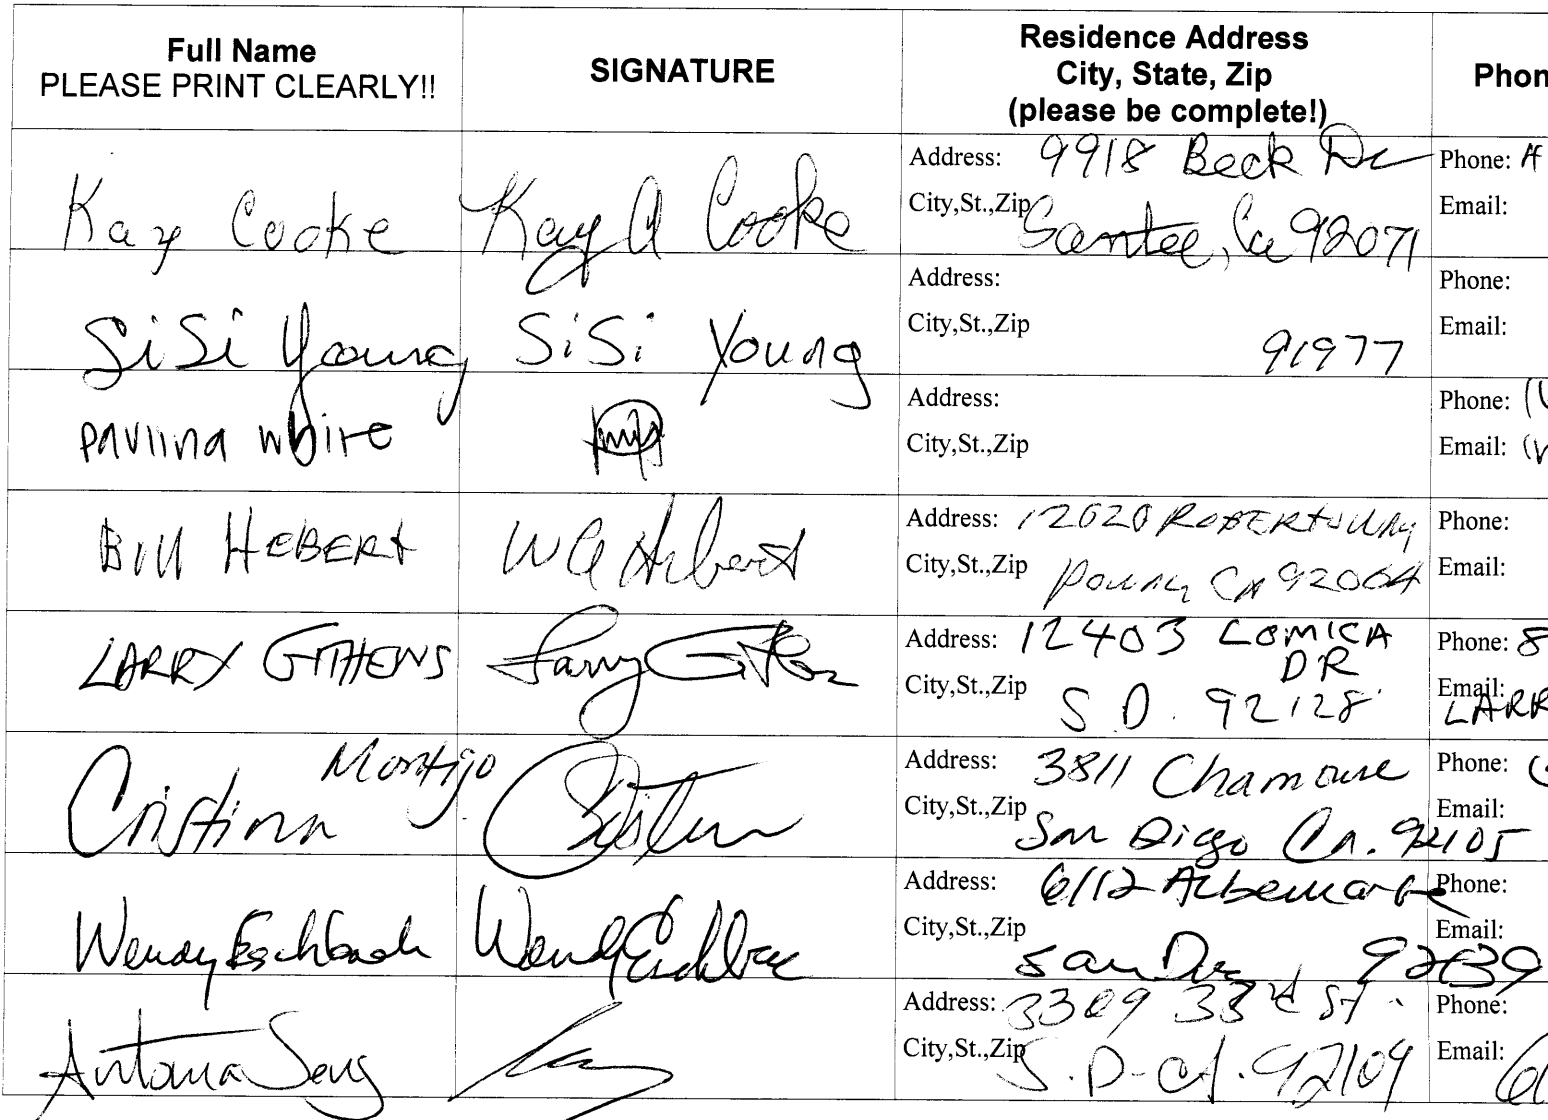 Full Name
PLEASE PRINT CLEARLY!!
SIGNATURE
Residence Address
City, State, Zip
(please be complete!)
Phon
Kay Cooke
Kay A Cooke
Address: 9918 Beck Dr
City,St.,Zip Santee, Ca 92071
Phone:
Email:
SiSi Young
SiSi Young
Address:
City,St.,Zip 91977
Phone:
Email:
pavlina white
Address:
City,St.,Zip
Phone:
Email:
Bill HEBERT
W A Hebert
Address: 12620 ROBERTS Way
City,St.,Zip Poway CA 92064
Phone:
Email:
LARRY GITHENS
Larry
Address: 12403 LOMICA
DR
City,St.,Zip S.D. 92128
Phone: 8
Email:
LARR
Cristina Montijo
Address: 3811 Chamoune
City,St.,Zip San Diego Ca. 92105
Phone:
Email:
Wendy Eschbach
Wendy Eschbac
Address: 6112 Albemarle
City,St.,Zip San 92139
Phone:
Email:
Antonia
Address: 3309 33rd St.
City,St.,Zip S.D-CA. 92104
Phone:
Email: